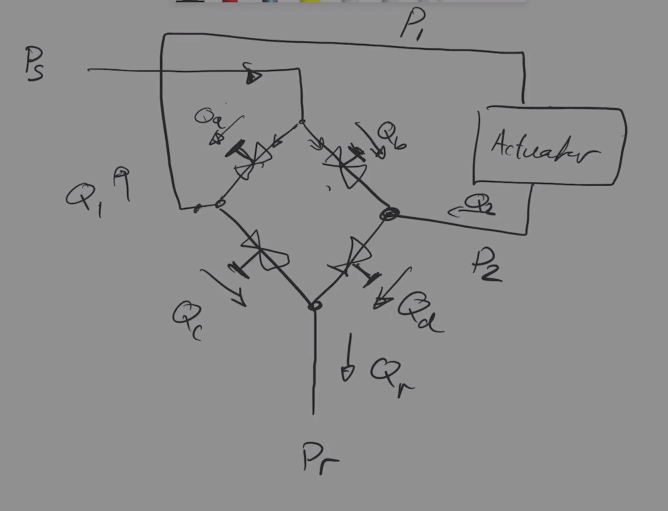 P₁
Ps
Qa
Qb
Actuator
Q₁
Q₂
P₂
Qc
Qd
Qr
Pr